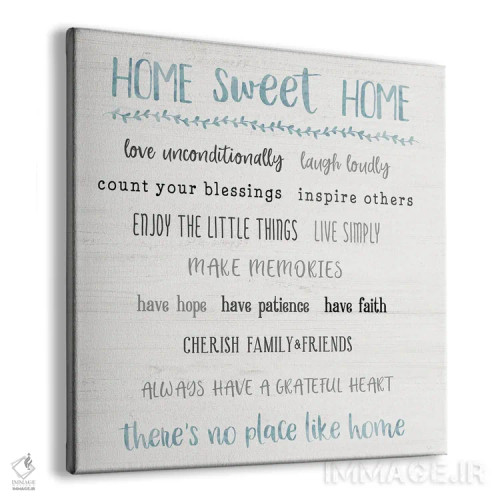 HOME sweet HOME
love unconditionally laugh loudly
count your blessings inspire others
ENJOY THE LITTLE THINGS LIVE SIMPLY
MAKE MEMORIES
have hope have patience have faith
CHERISH FAMILY & FRIENDS
ALWAYS HAVE A GRATEFUL HEART
there's no place like home
IMMAGE
IMMAGE.IR